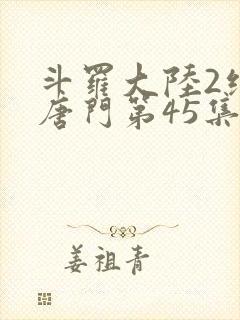 斗羅大陸2
唐門第45集
姜祖青